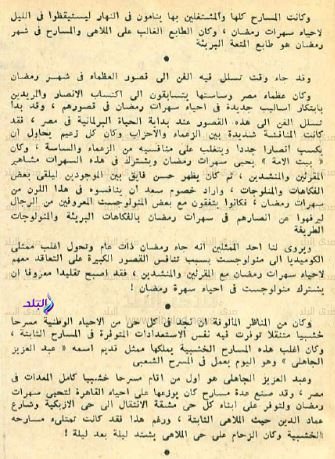 وكانت المسارح كلها والمشتغلين بها ينامون في النهار ليستيقظوا في الليل
لاحياء سهرات رمضان ، وكان الطابع الغالب على الملاهي والمسارح في شهر
رمضان هو طابع المتعة البريئة
وقد جاء وقت تسلل فيه الفن الى قصور العظماء في شهر رمضان
وكان عظماء مصر وساستها يتسابقون الى اكتساب الانصار والمريدين
بابتكار أساليب جديدة في احياء سهرات رمضان في قصورهم ، وقد بدأ
تسلل الفن الى هذه القصور عند بداية الحياة البرلمانية في مصر ، فقد
كانت المنافسة شديدة بين الزعماء والأحزاب وكان كل زعيم يحاول أن
يكسب أنصارا جددا ويتغلب على منافسيه من الزعماء والساسة ، وكان
« بيت الامة » يحيى سهرات رمضان ويشترك في هذه السهرات مشاهير
المقرئين والمنشدين ، ثم كان يظهر حسن فايق بين الموجودين ليلقى بعض
الفكاهات والمنلوجات ، واراد خصوم سعد أن ينافسوه في هذا اللون من
سهرات رمضان ، فكانوا يتفقون مع بعض المنولوجست المعروفين من الرجال
ليرفهوا عن أنصارهم في سهرات رمضان بالفكاهات البريئة والمنولوجات
الطريفة
ويروى لنا احد الممثلين انه جاء رمضان ذات عام وتحول اغلب ممثلى
الكوميديا الى منولوجست بسبب تنافس القصور الكبيرة على التعاقد معهم
لاحياء سهرات رمضان مع المقرئين والمنشدين ، فقد أصبح تقليدا معروفا ان
يشترك منولوجست في احياء سهرة رمضان !
وكان من المناظر المألوفة ان تجد في كل حى من الاحياء الوطنية مسرحا
خشبيا متنقلا توفرت فيه نفس الاستعدادات المتوفرة في المسارح الثابتة ،
وكان اغلب هذه المسارح الخشبية يملكها ممثل قديم اسمه « عبد العزيز
الجاهلى » وهو اليوم يعمل في المسرح الشعبى
وعبد العزيز الجاهلى هو اول من اقام مسرحا خشبيا كامل المعدات في
مصر ، وقد صنع عدة مسارح كان يوزعها على احياء القاهرة لتحيى سهرات
رمضان ولتوفر على ابناء كل حى مشقة الانتقال الى حى الازبكية وشارع
عماد الدين حيث الملاهى الثابتة ، ورغم هذا فقد كانت تمتلىء مسارحه
الخشبية وكان الزحام على حى الملاهى يشتد ليلة بعد ليلة !
البلد